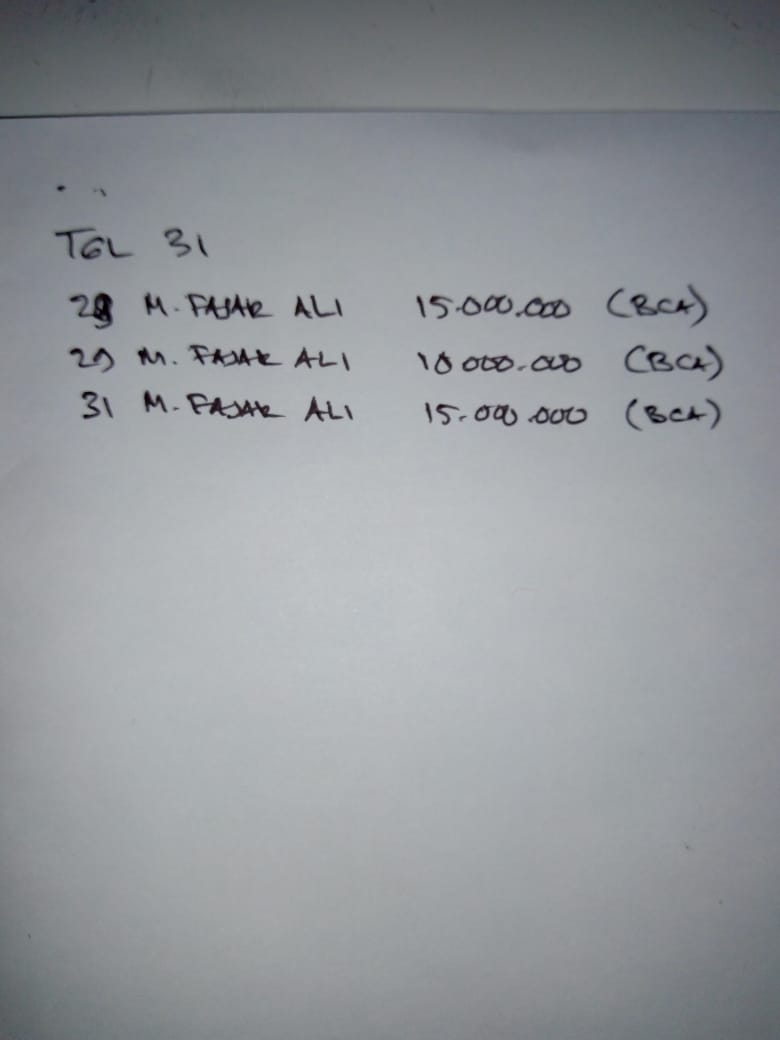 TGL 31
M. FAJAR ALI 15.000.000 (BCA)
29 M. FAJAR ALI 10 000.000 (BCA)
31 M. FAJAR ALI 15.000.000 (BCA)